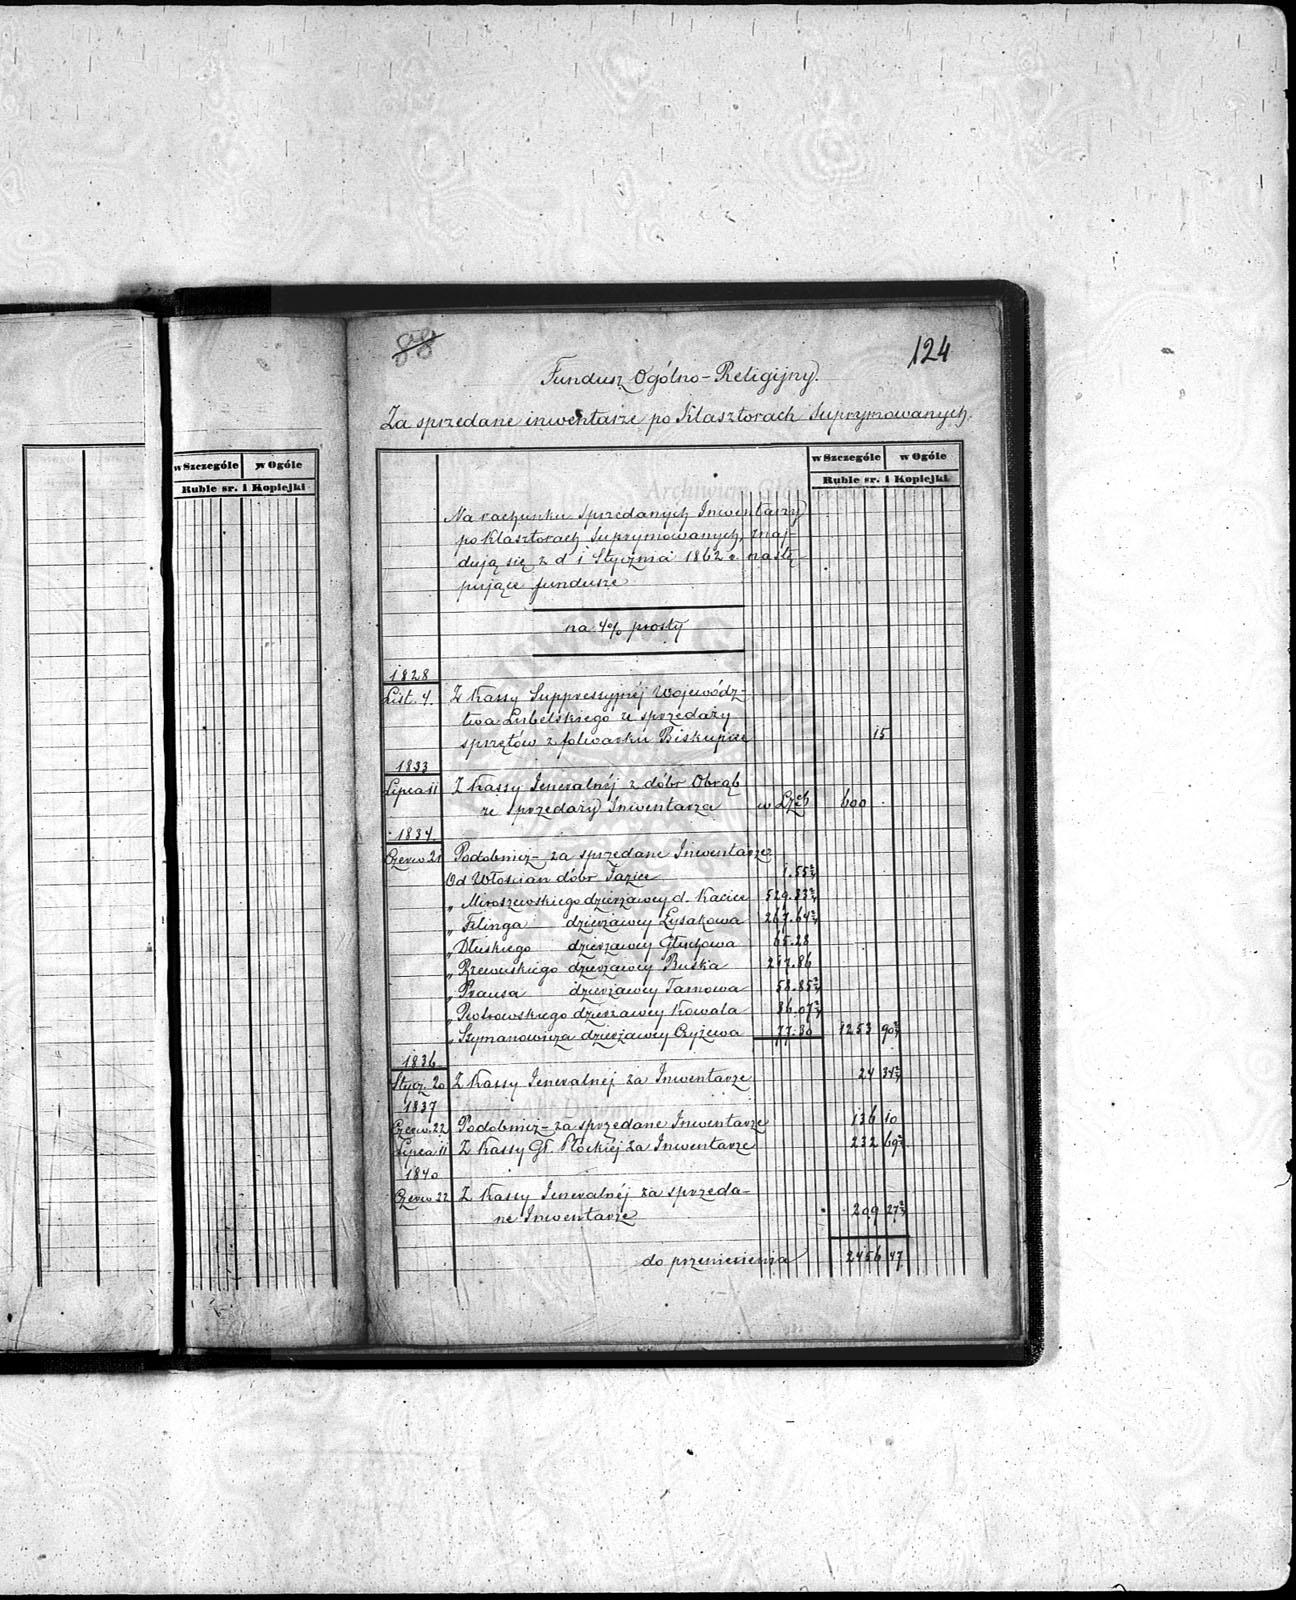 88
124
Fundusz Ogólno-Religijny.
Za sprzedane inwentarze po Klasztorach Suprymowanych.
w Szczególe w Ogóle
Ruble sr. i Kopiejki
w Szczególe w Ogóle
Ruble sr. i Kopiejki
Na rachunku sprzedanych Inwentarzy
po Klasztorach Suprymowanych, znaj-
dują się z d 1 Stycznia 1862 r. nastę-
pujące fundusze
na 4% prosty
1828
List. 4. Z Kassy Suppressyjnéj Wojewódz-
twa Lubelskiego ze sprzedaży
sprzętów z folwarku Biskupice 15
1833
Lipca 11 Z Kassy Jeneralnéj z dóbr Obrąb
ze sprzedaży Inwentarza 600
1834.
Czerw. 21 Podobnież - za sprzedane Inwentarze
Od Włościan dóbr 1.55
„ Miroszewskiego dzierżawcy d. Kacice 529.33
„ Filinga dzierżawcy Łysakowa 267.64
„ dzierżawcy Głuchowa 65.28
„ dzierżawcy Buska 217.86
„ Prausa dzierżawcy Tarnowa 58.85
„ Piotrowskiego dzierżawcy Kowala 36.07
„ Szymanowicza dzierżawcy Czyżewa 77.30 1253 90
1836
Stycz. 20 Z Kassy Jeneralnéj za Inwentarze 24 34
1837
Czerw. 22 Podobnież - za sprzedane Inwentarze 136 10
Lipca 11 Z Kassy Gł. Płockiéj za Inwentarze 232 69
1840
Czerw 22 Z Kassy Jeneralnéj za sprzeda-
ne Inwentarze 209 27
do przeniesienia 2456 47